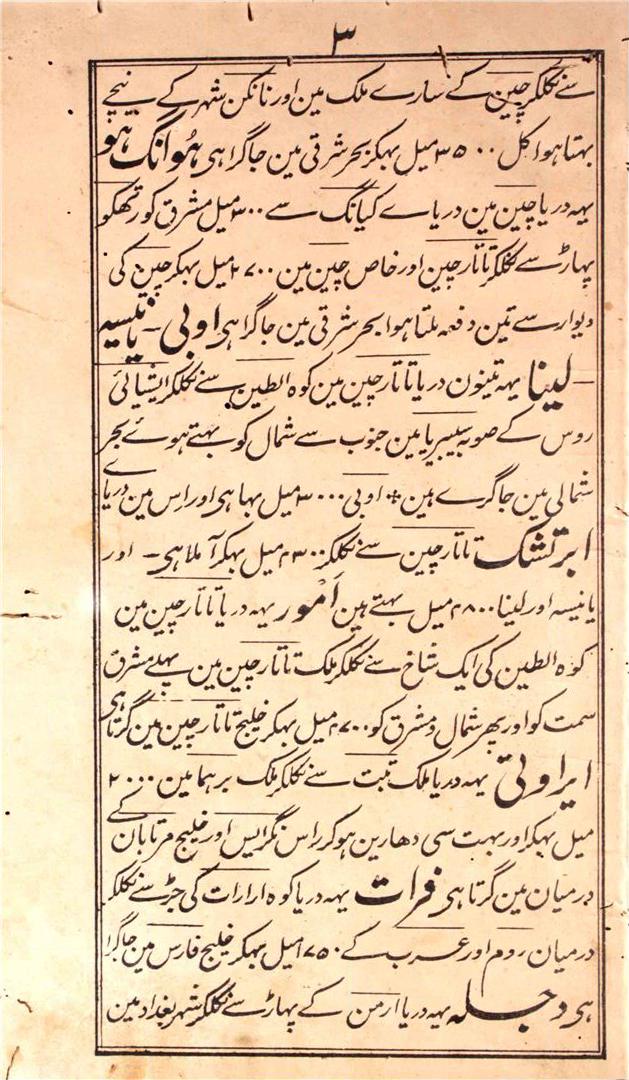 ۳
سے نکلکر چین کے سارے ملک مین اور نانکن شہر کے نیچے
بہتا ہوا کل ۳۵۰۰ میل بہکر بحر شرقی مین جا گرا ہی ہُوانگ ہو
یہہ دریا چین مین دریاے کیانگ سے ۳۰۰ میل مشرق کو رتھکو
پہاڑ سے نکلکر تاتار چین اور خاص چین مین ۲۷۰۰ میل بہکر چین کی
دیوار سے تین دفعہ ملتا ہوا بحر شرقی مین جا گرا ہی اوبی - یانیسیہ
- لینا یہہ تینون دریا تاتار چین مین کوہ الطین سے نکلکر ایشیائی
روس کے صوبہ سیبیریا مین جنوب سے شمال کو بہتے ہوئے بحر
شمالی مین جا گرے ہین * اوبی ۳۰۰۰ میل بہا ہی اور اس مین دریاے
ابرتشک تاتار چین سے نکلکر ۲۳۰۰ میل بہکر آ ملا ہی - اور
یانیسہ اور لینا ۲۸۰۰ میل بہتے ہین اَمُور یہہ دریا تاتار چین مین
کوہ الطین کی ایک شاخ سے نکلکر ملک تاتار چین مین پہلے مشرق
سمت کو اور پھر شمال و مشرق کو ۲۷۰۰ میل بہکر خلیج تاتار چین مین گرتا ہی
ایراوتی یہہ دریا ملک تبت سے نکلکر ملک برہما مین ۲۰۰۰
میل بہکر اور بہت سی دھارین ہوکر راس نگرایس اور خلیج مرتابان کے
درمیان مین گرتا ہی فرات یہہ دریا کوہ ارارات کی جڑ سے نکلکر
درمیان روم اور عرب کے ۱۷۵۰ میل بہکر خلیج فارس مین جا گرا
ہی دجلہ یہہ دریا ارمن کے پہاڑ سے نکلکر شہر بغداد مین